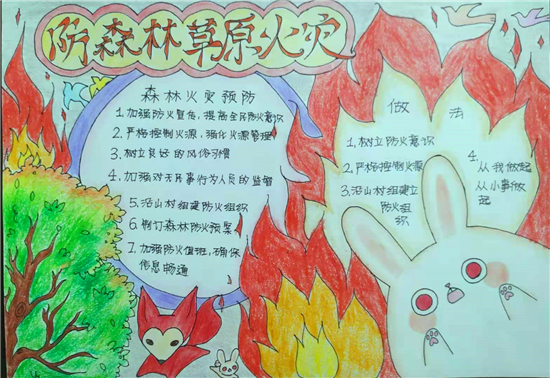 防森林草原火灾
森林火灾预防
1.加强防火宣传，提高全民防火意识
2.严格控制火源，强化火源管理
3.树立良好的风俗习惯
4.加强对无民事行为人员的监督
5.沿山村组建防火组织
6.制订森林防火预案
7.加强防火值班，确保
信息畅通
做法
1.树立防火意识
2.严格控制火源
3.沿山村组建立
防火组
织
4.
从我做起
从小事做
起